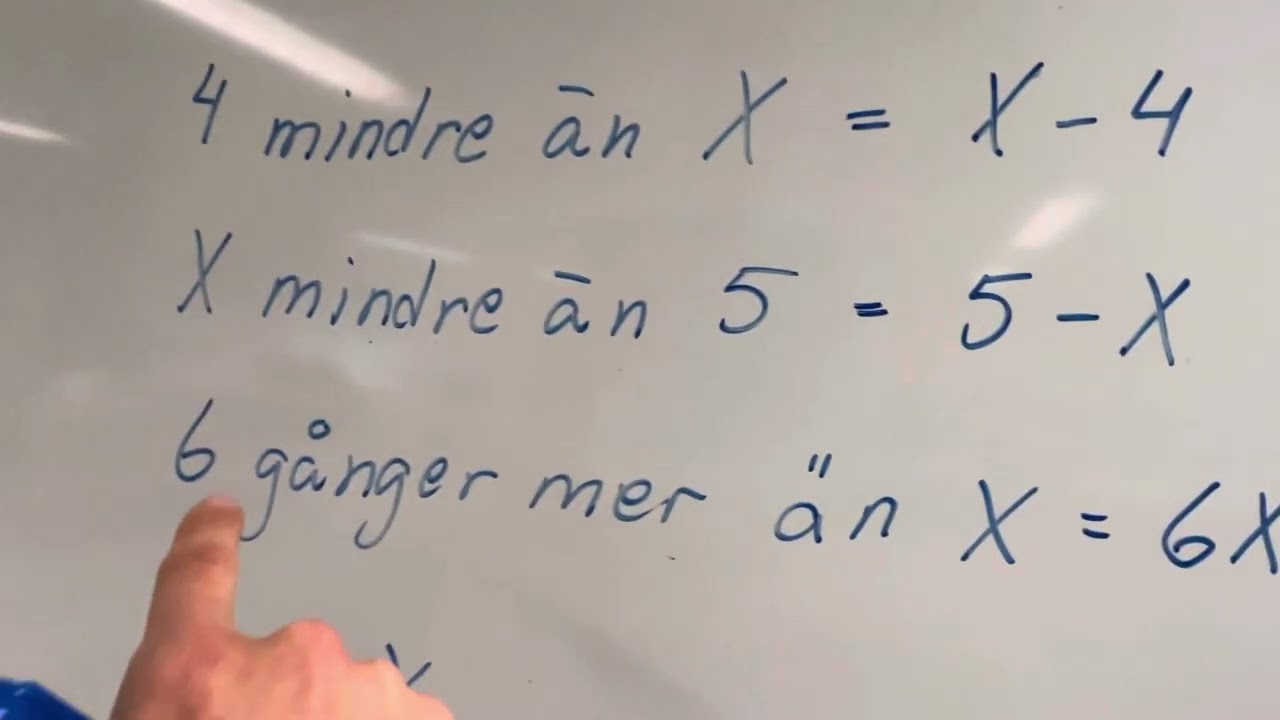 4 mindre än X = X - 4
X mindre än 5 = 5 - X
6 gånger mer än X = 6X